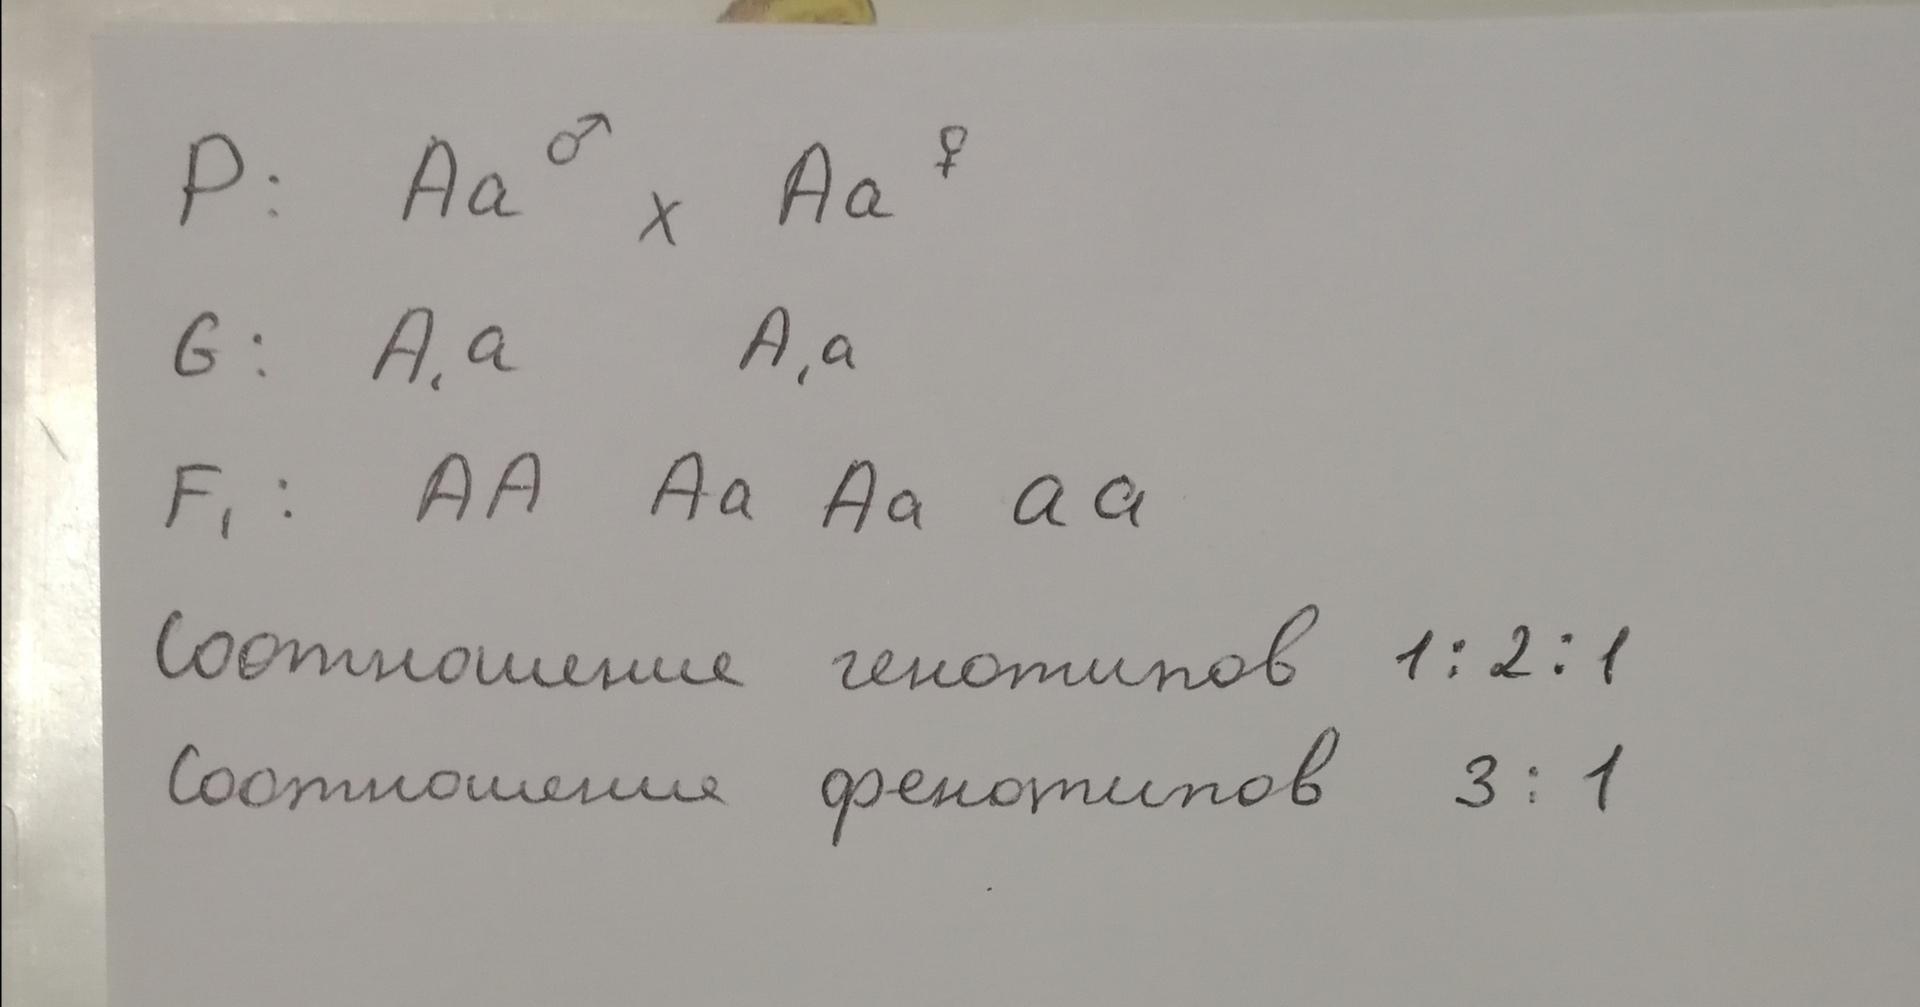 P: Aa ♂ x Aa ♀
G: A, a A, a
F₁: AA Aa Aa aa
Соотношение генотипов 1:2:1
Соотношение фенотипов 3:1